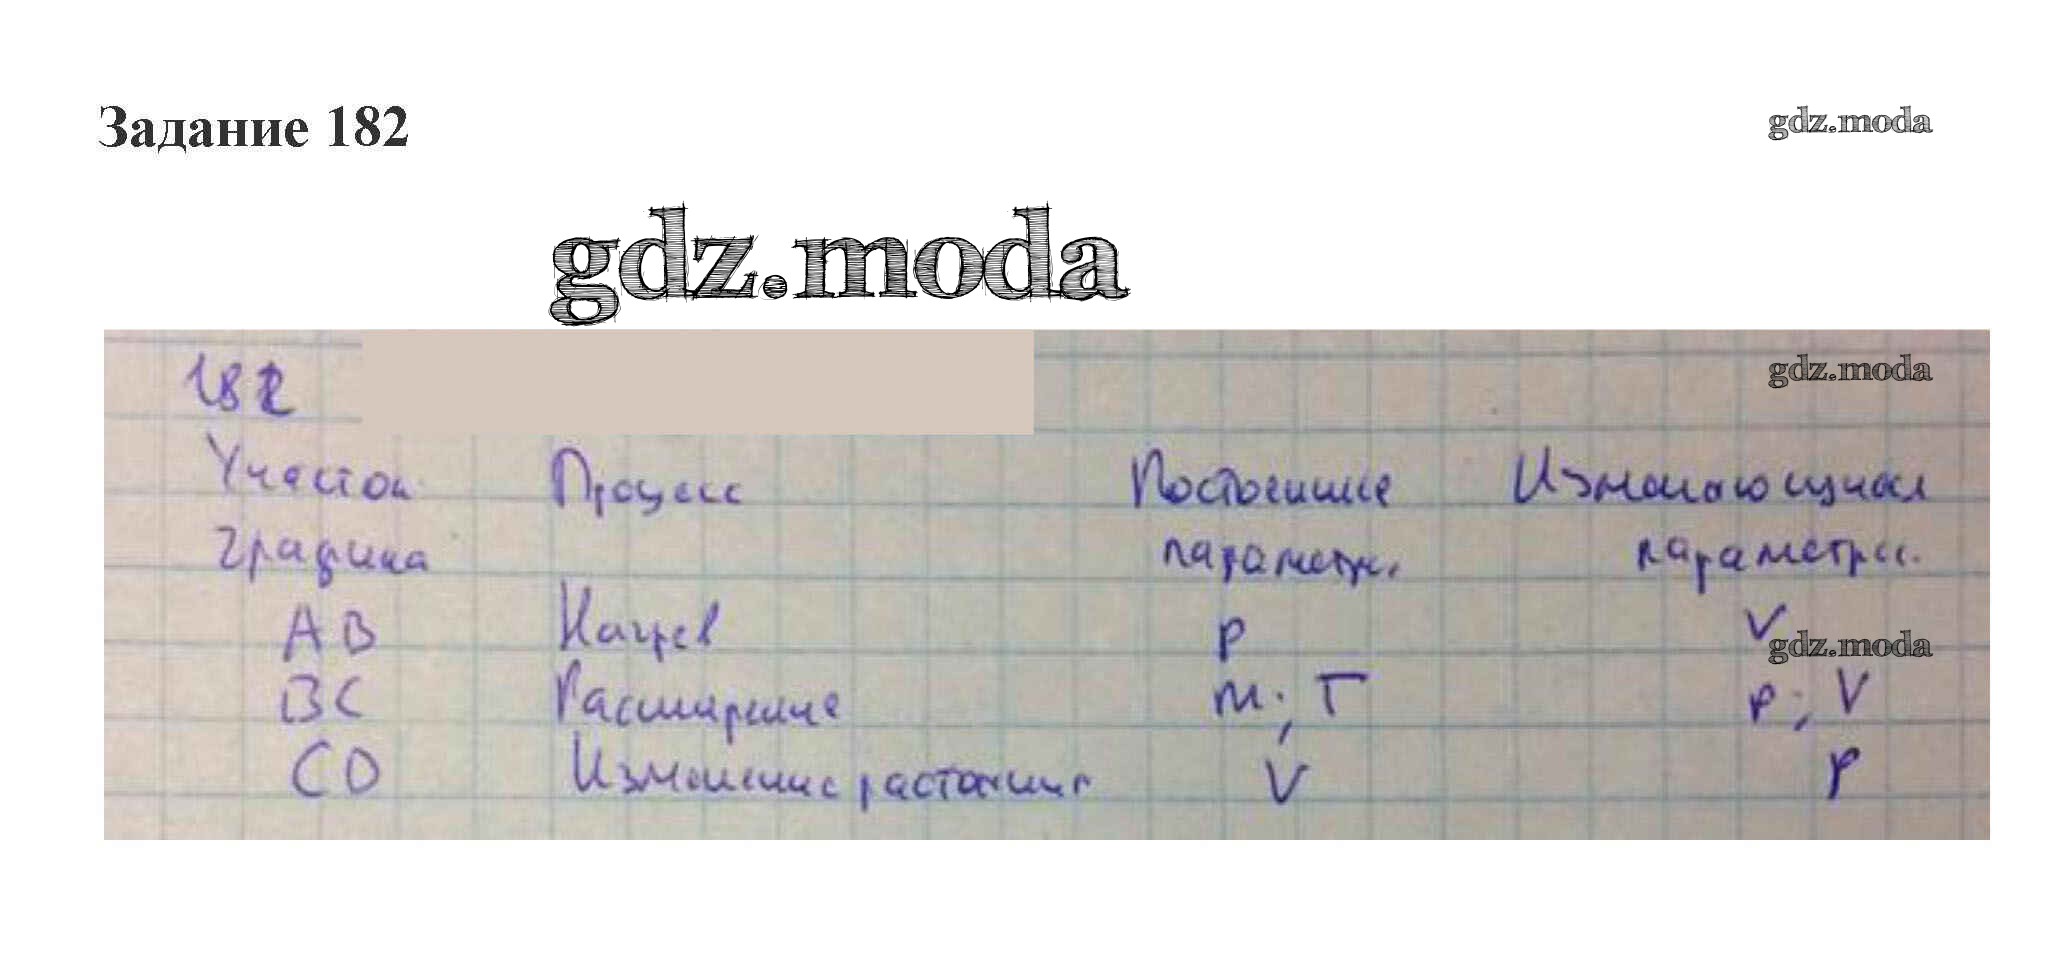 Задание 182
gdz.moda
gdz.moda
182
gdz.moda
Участок Процесс Постоянные Изменяющиеся
графика параметры параметры.
AB Нагрев p V
gdz.moda
BC Расширение m; T p; V
CD Изменение растояния V p